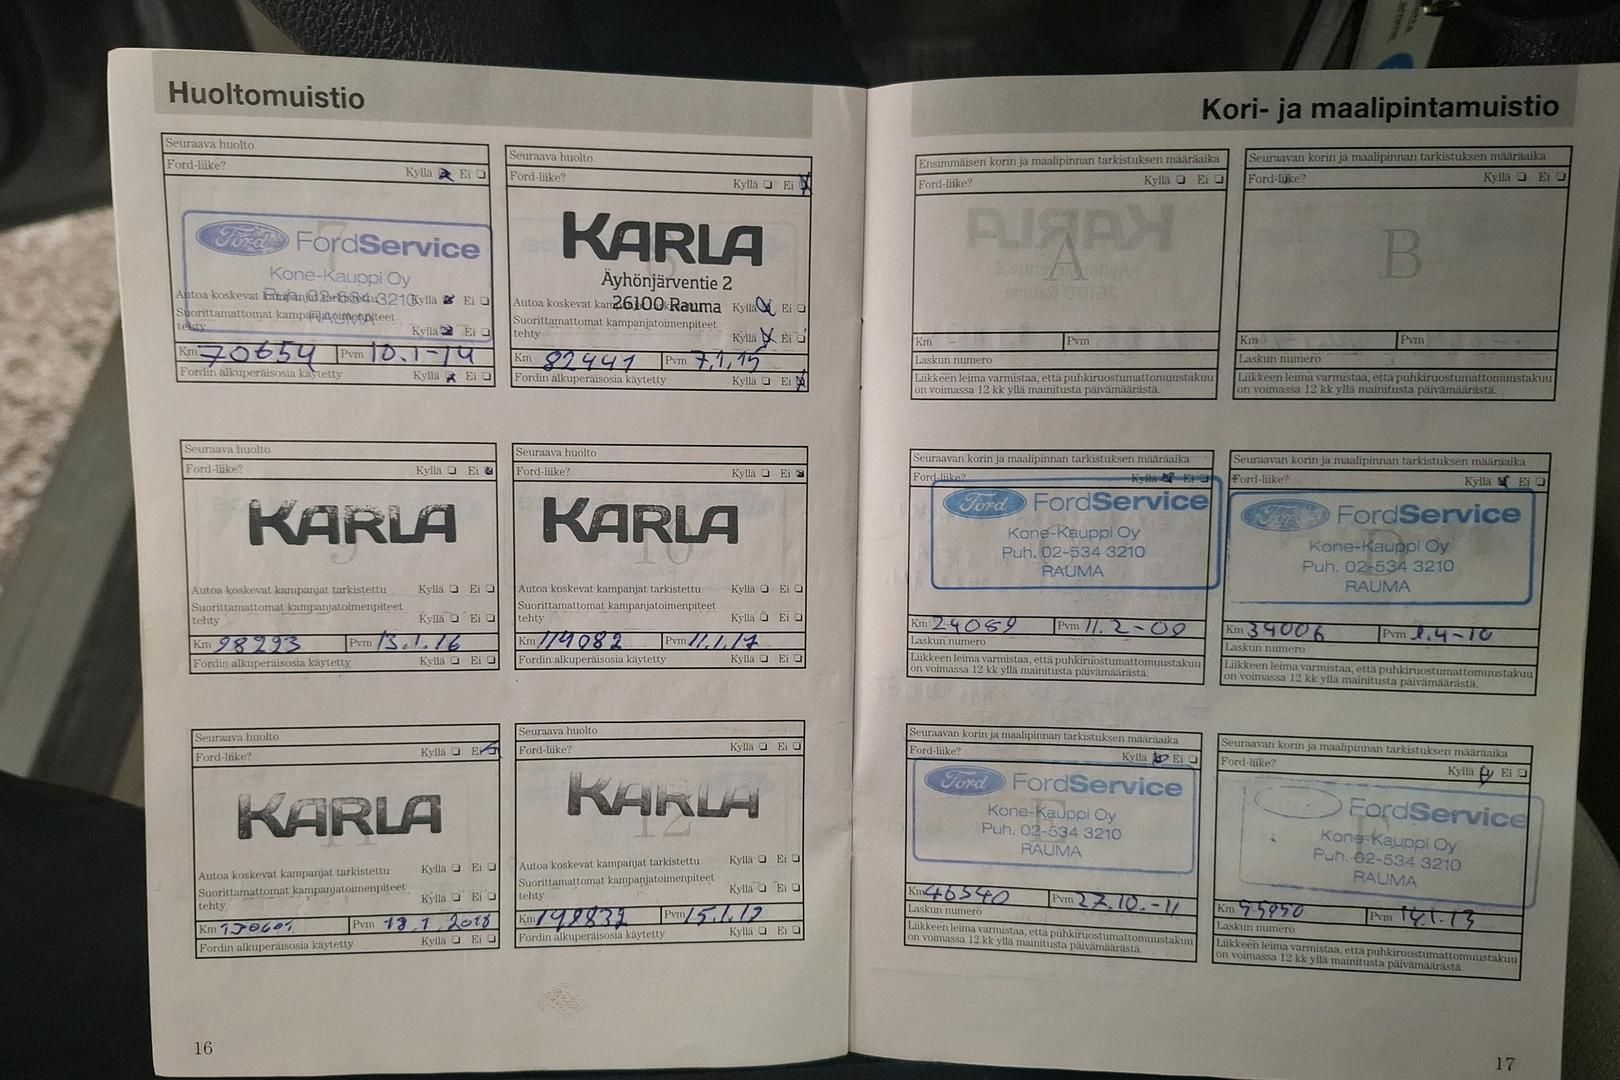 Huoltomuistio
Seuraava huolto
Ford-liike? Kyllä Ei
7
Ford FordService
Kone-Kauppi Oy
Puh. 02-534 3210
RAUMA
Autoa koskevat kampanjat tarkistettu Kyllä Ei
Suorittamattomat kampanjatoimenpiteet
tehty Kyllä Ei
Km 70654 Pvm 10.1-14
Fordin alkuperäisosia käytetty Kyllä Ei
Seuraava huolto
Ford-liike? Kyllä Ei
KARLA
Äyhönjärventie 2
26100 Rauma
Autoa koskevat kampanjat tarkistettu Kyllä Ei
Suorittamattomat kampanjatoimenpiteet
tehty Kyllä Ei
Km 82441 Pvm 7.1.15
Fordin alkuperäisosia käytetty Kyllä Ei
Seuraava huolto
Ford-liike? Kyllä Ei
KARLA
9
Autoa koskevat kampanjat tarkistettu Kyllä Ei
Suorittamattomat kampanjatoimenpiteet
tehty Kyllä Ei
Km 98293 Pvm 13.1.16
Fordin alkuperäisosia käytetty Kyllä Ei
Seuraava huolto
Ford-liike? Kyllä Ei
KARLA
10
Autoa koskevat kampanjat tarkistettu Kyllä Ei
Suorittamattomat kampanjatoimenpiteet
tehty Kyllä Ei
Km 114082 Pvm 11.1.17
Fordin alkuperäisosia käytetty Kyllä Ei
Seuraava huolto
Ford-liike? Kyllä Ei
KARLA
11
Autoa koskevat kampanjat tarkistettu Kyllä Ei
Suorittamattomat kampanjatoimenpiteet
tehty Kyllä Ei
Km Pvm 18.1.2018
Fordin alkuperäisosia käytetty Kyllä Ei
Seuraava huolto
Ford-liike? Kyllä Ei
KARLA
12
Autoa koskevat kampanjat tarkistettu Kyllä Ei
Suorittamattomat kampanjatoimenpiteet
tehty Kyllä Ei
Km Pvm
Fordin alkuperäisosia käytetty Kyllä Ei
16
Kori- ja maalipintamuistio
Ensimmäisen korin ja maalipinnan tarkistuksen määräaika
Ford-liike? Kyllä Ei
A
Km Pvm
Laskun numero
Liikkeen leima varmistaa, että puhkiruostumattomuustakuu
on voimassa 12 kk yllä mainitusta päivämäärästä.
Seuraavan korin ja maalipinnan tarkistuksen määräaika
Ford-liike? Kyllä Ei
B
Km Pvm
Laskun numero
Liikkeen leima varmistaa, että puhkiruostumattomuustakuu
on voimassa 12 kk yllä mainitusta päivämäärästä.
Seuraavan korin ja maalipinnan tarkistuksen määräaika
Ford-liike? Kyllä Ei
Ford FordService
Kone-Kauppi Oy
Puh. 02-534 3210
RAUMA
Km 24059 Pvm 11.2-09
Laskun numero
Liikkeen leima varmistaa, että puhkiruostumattomuustakuu
on voimassa 12 kk yllä mainitusta päivämäärästä.
Seuraavan korin ja maalipinnan tarkistuksen määräaika
Ford-liike? Kyllä Ei
Ford FordService
D
Kone-Kauppi Oy
Puh. 02-534 3210
RAUMA
Km 34006 Pvm
Laskun numero
Liikkeen leima varmistaa, että puhkiruostumattomuustakuu
on voimassa 12 kk yllä mainitusta päivämäärästä.
Seuraavan korin ja maalipinnan tarkistuksen määräaika
Ford-liike? Kyllä Ei
Ford FordService
E
Kone-Kauppi Oy
Puh. 02-534 3210
RAUMA
Km 46540 Pvm 27.10.-11
Laskun numero
Liikkeen leima varmistaa, että puhkiruostumattomuustakuu
on voimassa 12 kk yllä mainitusta päivämäärästä.
Seuraavan korin ja maalipinnan tarkistuksen määräaika
Ford-liike? Kyllä Ei
FordService
F
Kone-Kauppi Oy
Puh. 02-534 3210
RAUMA
Km Pvm 14.1-13
Laskun numero
Liikkeen leima varmistaa, että puhkiruostumattomuustakuu
on voimassa 12 kk yllä mainitusta päivämäärästä.
17